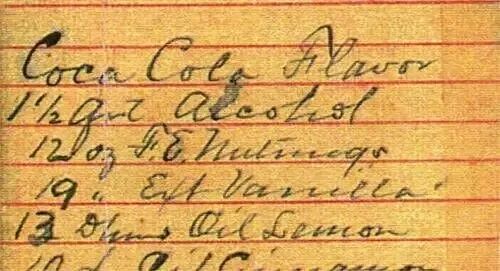 Coca Cola Flavor
1 1/2 qrt Alcohol
12 oz F.E. Nutmegs
19 " Ext Vanilla
13 Dhms Oil Lemon
10 d. Oil Cinnamon